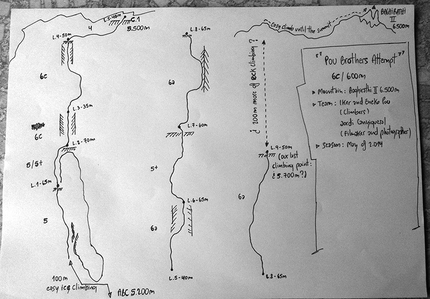 4
C.1
5.300m
6c
L.3-35m
6c
L.2-70m
5/5+
L.1-65m
5
100m
easy ice climbing
ABC 5.200m
L.8-65m
6a
L.7-60m
5+
L.6-65m
6a
L.5-40m
¿200m more of rock climbing?
L.9-50m
(our last
climbing point:
¿5.700m?)
6a
L.8-65m
Easy climb until the summit
BHAGIRATHI
II
6.500m
"Pou Brothers Attempt"
6c/600m
Mountain: Bagirathi II 6.500m
Team: Iker and Eneko Pou
(Climbers)
Jordi Canyigueral
(Filmmaker and photographer)
Season: May of 2019